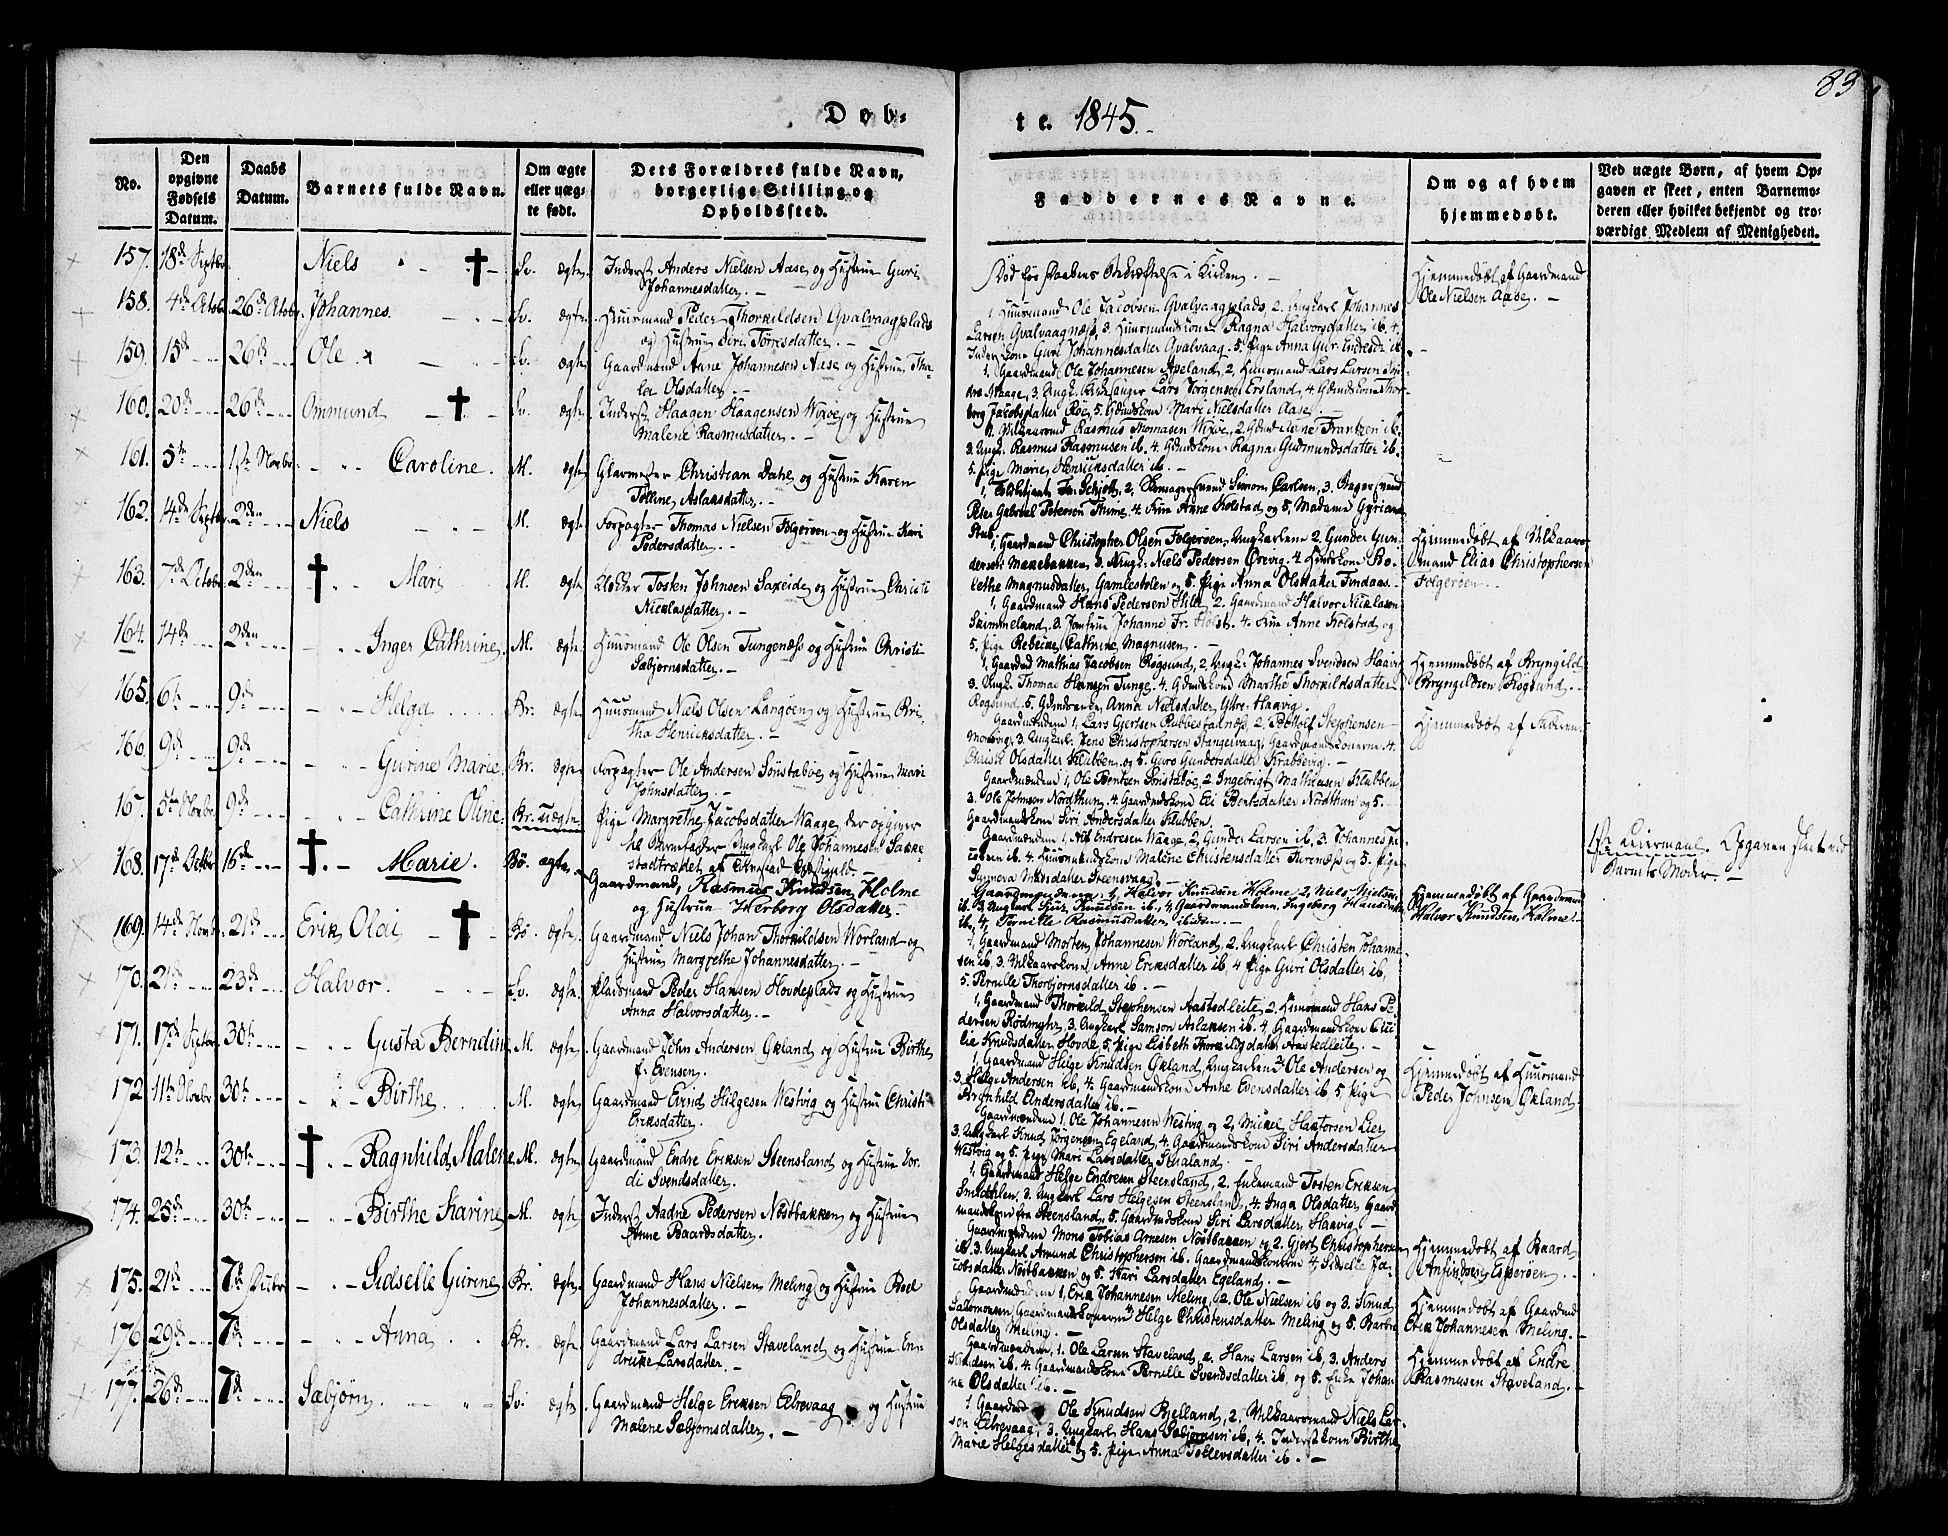 83
Døb-
te. 1845.
No.
Den opgivne Fødsels Datum.
Daabs Datum.
Barnets fulde Navn.
Om ægte eller uæg-
te født.
Dets Forældres fulde Navn,
borgerlige Stilling og
Opholdssted.
Faddernes Navne.
Om og af hvem
hjemmedøbt.
Ved uægte Børn, af hvem Op-
gaven er skeet, enten Barnemo-
deren eller hvilket bekjendt og tro-
værdigt Medlem af Menigheden.
157. 18de Septbr. Niels Sv. ægte. Inderst Anders Nielsen Aase og Hustrue Guri
Johannesdatter.
Død før Daabens Bekræftelse i Kirken.
Hjemmedøbt af Gaardmand
Ole Nielsen Aase.
158. 4de Octobr. 26de Octobr. Johannes. Sv. ægte. Huusmand Peder Thorkildsen Qvalvaagplads
og Hustrue Siri Tørrisdatter.
1 Huusmand Ole Jacobsen Qvalvaagplads, 2. Ungkarl Johannes
Larsen Qvalvaagnæss, 3. Huusmandskone Ragna Halvorsdatter ib. 4.
Guri Johannesdatter Qvalvaag. 5. Pige Anna
159. 15de 26de Ole Sv. ægte. Gaardmand Aane Johannesen Aase og Hustrue Tha-
lea Olsdatter.
1. Gaardmand Ole Johannesen Apeland, 2. Huusmand Lars Larsen
3. Ungk. Lars Jørgensen Ersland, 4. Gdmdskone Thor-
borg Jacobsdatter Røe, 5. Gdmdskone Mari Nielsdatter Aase.
160. 20de 26de Ommund Sv. ægte. Inderst Haagen Haagensen Wixøe og Hustrue
Malene Rasmusdatter.
1. Vilkaarmd Rasmus Thomasen Wixøe, 2. Gdmd Arne Frantzen ib.
3. Ungk. Rasmus Rasmusen ib. 4. Gdmdskone Ragna Gudmundsdatter ib.
5. Pige Marie Henriksdatter ib.
161. 5te 1ste Novbr. Caroline. M. ægte Glarmester Christian Dahl og Hustrue Karen
Tolline Aslaksdatter.
1, Fr. Schjøtt, 2, Simon Carlsen, 3.
Peter Gabriel Petersen Thime, 4. Frue Anne Kolstad og 5. Madame
162. 14de Septbr. 2den Niels M. ægte Forpagter Thomas Nielsen Følgerøen og Hustrue Kari
Pedersdatter.
1. Gaardmand Christopher Olsen Følgerøen, Ungkarlene 2. Gunder Gun-
dersen Mækebakken, 3. Ungk. Niels Pedersen Ørevig. 4. Bo-
lethe Magnusdatter Gamlestølen og 5. Pige Anna Olsdatter Findaas.
Hjemmedøbt af Vilkaars-
mand Elias Christophersen
Følgerøen.
163. 7de Octobr. 2den Mari M. ægte Tosten Johnsen Saxeide og Hustrue Christi
Nicolasdatter.
1, Gaardmand Hans Pedersen Hille 2. Gaardmand Halvor Nicklasen
Skimmeland, 3. Jomfrue Johanne Fr. Holst. 4. Frue Anne Kolstad og
5. Pige Rebeike Cathrine Magnusen.
164. 14de 2den Inger Cathrine M. ægte. Huusmand Ole Olsen Tungenæss og Hustrue Christi
Sæbjørnsdatter.
1, Gaardmd Mathias Jacobsen Røgsund, 2. Ungk. Johannes Svendsen Haavig
3. Ungk. Thomas Hansen Tunge. 4. Gdmdskone Marthe Thorkildsdatter
Rogsund. 5. Anna Nielsdatter Ytre-Haavig.
Hjemmedøbt af Bryngild
Bryngildsen Røgsund.
165. 6te 9de Helga Br. ægte. Huusmand Niels Olsen Langøen og Hustrue Bri-
tha Henricksdatter.
Gaardmændene 1, Lars Gjertsen Rubbestadnæss, 2. Stephensen
3. Ungkarl Jens Christophersen Stangelvaag, Gaardmandskonerne 4.
Christi Olsdatter Klubben og 5. Guro Gundersdatter Krabbevig.
Hjemmedøbt af Faderen.
166. 9de 9de Gurine Marie Br. ægte. Forpagter Ole Andersen Sønstabøe og Hustrue Mari
Johnsdatter.
Gaardmændene 1, Ole Bentsen Sønstabøe, 2. Ingebrigt Mathiesen Klubben
3. Ole Johnsen Nordthun, 4. Gaardmdskone Eli Bertsdatter Nordthun og 5.
Gaardmdskone Siri Andersdatter Klubben.
167. 5te Novbr. 9de Cathrine Oline Br. uægte. Pige Margrethe Jacobsdatter Waage, der opgiver
til Barnefader Ungkarl Ole Johannesen Sakke-
stadtrædet af Ølmestad
Gaardmændene 1, Endresen Waage, 2, Gunder Larsen ib, 3. Johannes
ib. 4. Huusmandskone Malene Christensdatter og 5. Pige
Gunnera Monsdatter Steensvaag.
1ste Leiermaal. Opgaven skeet ved
Barnets Moder.
168. 17de Octbr. 16de Marie. Bø. ægte. Gaardmand, Rasmus Knudsen Holme
og Hustrue Herborg Olsdatter.
Gaardmændene, 1, Halvor Knudsen Holme, 2, Niels Nielsen
ib. 3. Ungkarl Knudsen ib, 4. Gaardmandskone, Ingeborg Hansdatter
ib, Pernille Rasmusdatter, ibidem.
Hjemmedøbt af Gaardmand
Halvor Knudsen Holme
169. 14de Novbr. 21de Erik Olai Bø. ægte. Gaardmand Niels Johan Thorkildsen Worland og
Hustrue Margrethe Johannesdatter.
1, Gaardmand Morten Johannesen Worland, 2. Ungkarl Christen Johanne-
sen ib. 3. Vilkaarskone Anne Eriksdatter ib, 4 Pige Guri Olsdatter ib,
5. Pernille Thorbjørnsdatter ib.
170. 21de 23de Halvor. Sv. ægte. Pladsmand Peder Hansen Hovdeplads og Hustrue
Anna Halvorsdatter.
1, Gaardmand Thorkild Stephensen Aastedleite, 2. Huusmand Hans Pe-
dersen Rødmyhr, 3. Ungkarl Samson Aslaksen ib. 4. Gaardmandskone Ceci-
lie Knudsdatter Hovde, 5. Pige Lisbeth Thorkildsdatter Aastedleite.
171. 17de Septbr. 30te Gusta Berndine M. ægte. Gaardmand John Andersen Økland og Hustrue Birthe
f. Evensen.
1. Gaardmand Helge Knudsen Økland, Ungkarlene 2. Ole Andersen og
3. Helge Andersen ib, 4. Gaardmandskone Anne Evensdatter ib 5. Pige
Brynhild Andersdatter ib.
Hjemmedøbt af Huusmand
Peder Johnsen Økland
172. 11te Novbr. 30te Birthe M. ægte. Gaardmand Eivind Helgesen Westvig og Hustrue Christi
Eriksdatter.
Gaardmændene 1. Ole Johannesen Westvig og 2, Mikel Hactorsen Lier,
3. Ungkarl Knud Jørgensen Egeland, 4. Gaardmandskone Siri Andersdatter
Westvig og 5. Pige Mari Larsdatter Skualand.
173. 12te 30te Ragnhild Malene M. ægte. Gaardmand Endre Eriksen Steensland og Hustrue Gor-
di Svendsdatter.
1, Gaardmand Helge Endresen Steensland, 2. Tosten Eriksen
3. Ungkarl Lars Helgesen Steensland, 4. Inga Olsdatter, Gaard-
mandskone fra Steensland, 5. Gaardmdskone Siri Larsdatter Haavig.
174. 25de 30te Birthe Karine M. ægte. Inderst Aadne Pedersen Nøstbakken og Hustrue
Anne Baardsdatter.
Gaardmændene Mons Tobias Arnesen Nøstbakken og 2. Gjert Christophersen
ib. 3. Ungkarl Amund Christophersen ib. Gaardmandskonerne 4 Sidselle Ja-
cobsdatter Nøstbakken og 5. Kari Larsdatter Egeland.
Hjemmedøbt af Baard
Anfindsen Esperøen.
175. 21de 7de Decbr. Sidselle Gurine Br. ægte. Gaardmand Hans Nielsen Meling og Hustrue Boel
Johannesdatter.
Gaardmændene 1, Erik Johannesen Meling, 2. Ole Nielsen ib og 3. Knud
Salomonsen, Gaardmandskonerne 4, Helge Christensdatter Meling og 5. Barbro
Olsdatter Meling.
Hjemmedøbt af Gaardmd
Erik Johannesen Meling.
176. 29de 7de Anna Br. ægte. Gaardmand Lars Larsen Staveland og Hustrue En-
drikke Larsdatter.
Gaardmændene, 1. Ole Larsen Staveland, 2. Hans Larsen ib, 3. Anders
Knudsen ib. 4. Gaardmandskone Pernille Svendsdatter ib, og 5. Pike Johan-
ne Olsdatter ib.
Hjemmedøbt af Endre
Rasmusen Staveland.
177. 26de 7de Sæbjørn Sv. ægte. Gaardmand Helge Eriksen Eltrevaag og Hustrue
Malene Sæbjørnsdatter.
1 Gaardmd Ole Knudsen Bjelland, 2. Vilkaarsmand Niels Lar-
sen Eltrevaag, 3. Ungkarl Hans Sæbjørnsen ib, 4. Inderstkone Birthe
Marie Helgesdatter ib og 5. Pige Anna Tollevsdatter ib.